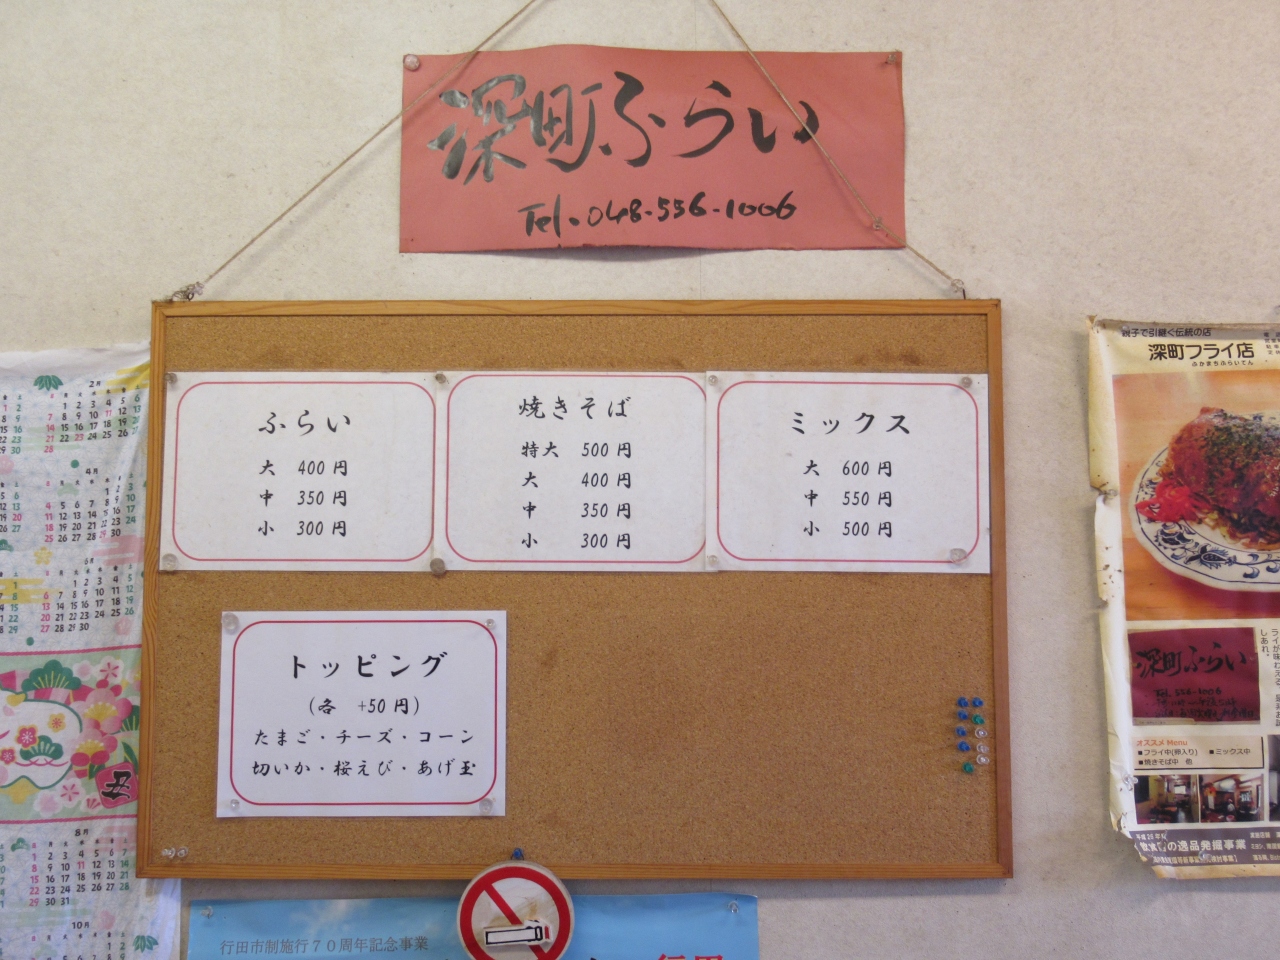 深町ふらい
Tel.048-556-1006
ふらい
大 400円
中 350円
小 300円
焼きそば
特大 500円
大 400円
中 350円
小 300円
ミックス
大 600円
中 550円
小 500円
トッピング
(各 +50円)
たまご・チーズ・コーン
切いか・桜えび・あげ玉
親子で引継ぐ伝統の店
深町フライ店
ふかまちふらいてん
深町ふらい
オススメ Menu
■フライ中(卵入り) ■ミックス中
■焼きそば中 他
の逸品発掘事業
2月
4月
8月
10月
丑
行田市制施行70周年記念事業